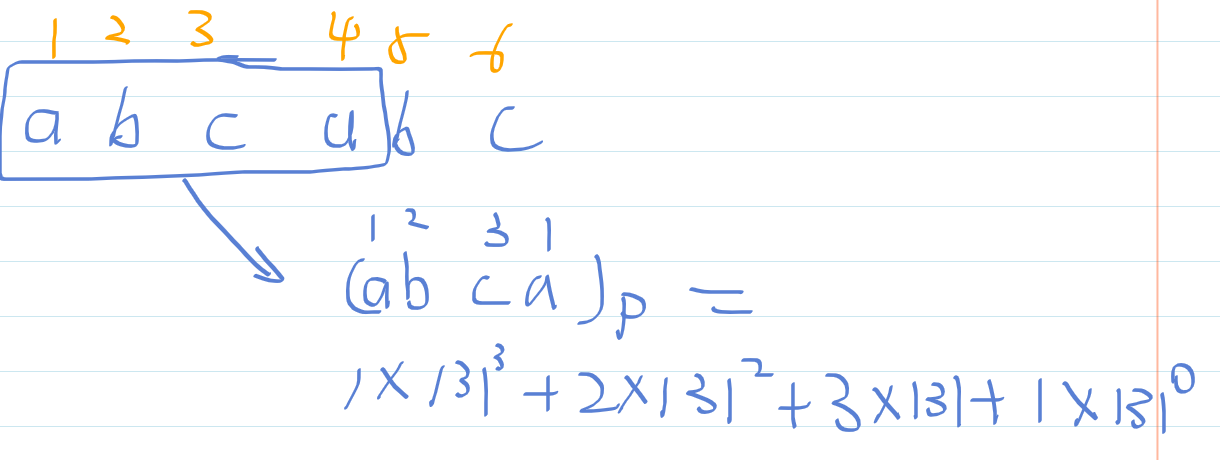 1 2 3 4 5 6
a b c a b c
1 2 3 1
(ab ca)p =
1×131³+2×131²+3×131+1×131⁰